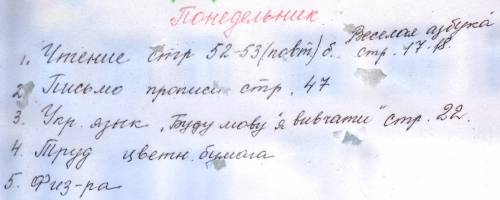 Понедельник
Веселая азбука
1. Чтение стр 52-53 (повт) б. стр. 17-18.
2. Письмо прописи стр. 47
3. Укр. язык „Буду мову я вивчати" стр. 22.
4. Труд цветн. бумага
5. Физ-ра